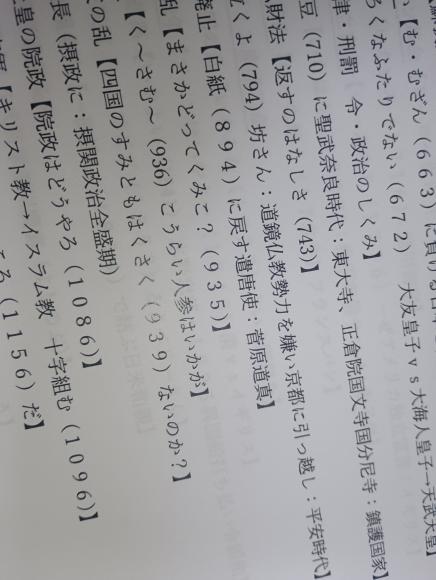 い【む・むざん（６６３）に負ける日本
ろくなふたりでない（６７２）　大友皇子ｖｓ大海人皇子→天武天皇】
律・刑罰　令・政治のしくみ】
豆（710）に聖武奈良時代：東大寺、正倉院国文寺国分尼寺：鎮護国家】
財法【返すのはなしさ（743）】
くよ（794）坊さん：道鏡仏教勢力を嫌い京都に引っ越し：平安時代】
廃止【白紙（８９４）に戻す遣唐使：菅原道真】
乱【まさかどってくみこ？（９３５）】
【く～さむ～（936）こうらい人参はいかが】
の乱【四国のすみともはくさく（９３９）ないのか？】
長（摂政に：摂関政治全盛期）
皇の院政【院政はどうやろ（１０８６）】
【キリスト教→イスラム教　十字組む（１０９６）】
ろ（１１５６）だ】